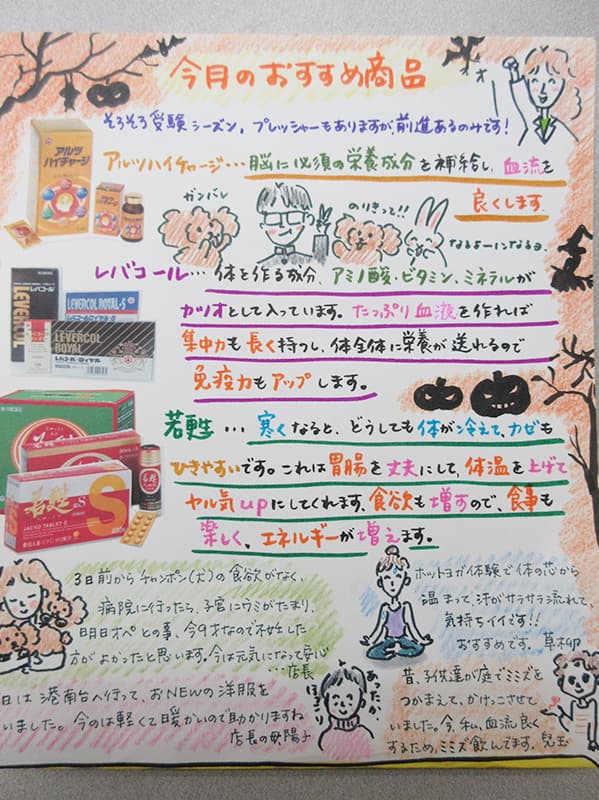 今月のおすすめ商品
そろそろ受験シーズン。プレッシャーもありますが、前進あるのみです!
オー
アルツハイチャージ… 脳に必須の栄養成分を補給し、血流を
良くします。
アルツ
ハイチャージ
ガンバレ
のりきって!!
なるよーになるヨ。
レバコール… 体を作る成分、アミノ酸・ビタミン、ミネラルが
カツオとして入っています。たっぷり血液を作れば
集中力も長く持つし、体全体に栄養が送れるので
免疫力もアップします。
LEVERCOL ROYAL-S
レバコール
LEVERCOL
ROYAL
レバコールロイヤル
若甦 … 寒くなると、どうしても体が冷えて、カゼも
ひきやすいです。これは胃腸を丈夫にして、体温を上げて
ヤル気upにしてくれます。食欲も増すので、食事も
楽しく、エネルギーが増えます。
若甦
若甦S
JACKO TABLET S
S
3日前からチャンポン(犬)の食欲がなく、
病院に行ったら、子宮にウミがたまり、
明日オペとの事、今9才なので不妊した
方がよかったと思います。今は元気になって安心
…店長
ホットヨガ体験で体の芯から
温まって、汗がサラサラ流れて、
気持ちイイです!!
おすすめです。 草柳
日は港南台へ行って、おNEWの洋服を
いました。今のは軽くて暖かいので助かりますね
店長の母陽子
あったか
ほっこり
昔、子供達が庭でミミズを
つかまえて、かけっこさせて
いました。今、私、血流良く
するため、ミミズ飲んでます。兒玉